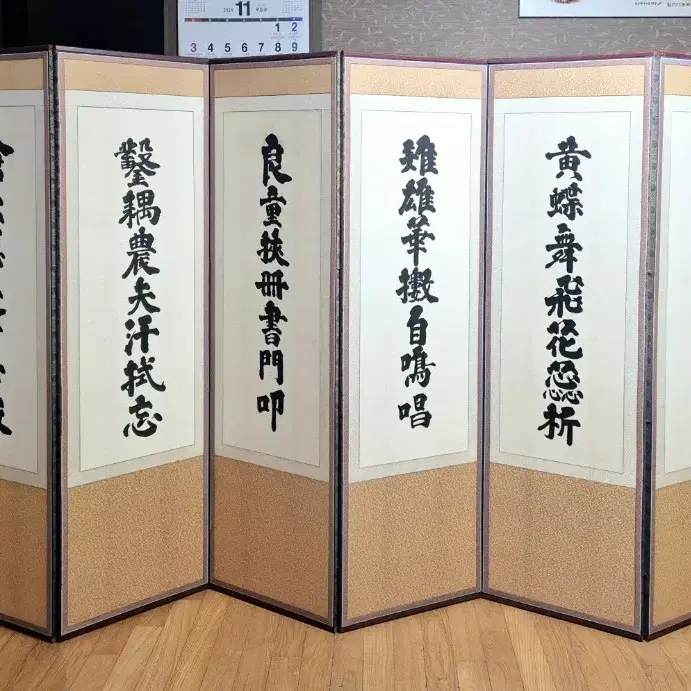 11
1 2
3 4 5 6 7 8 9
黄蝶舞飛花恐折
雉雄華 自鳴唱
良童挾冊書門叩
鑿耦農夫汗拭忘